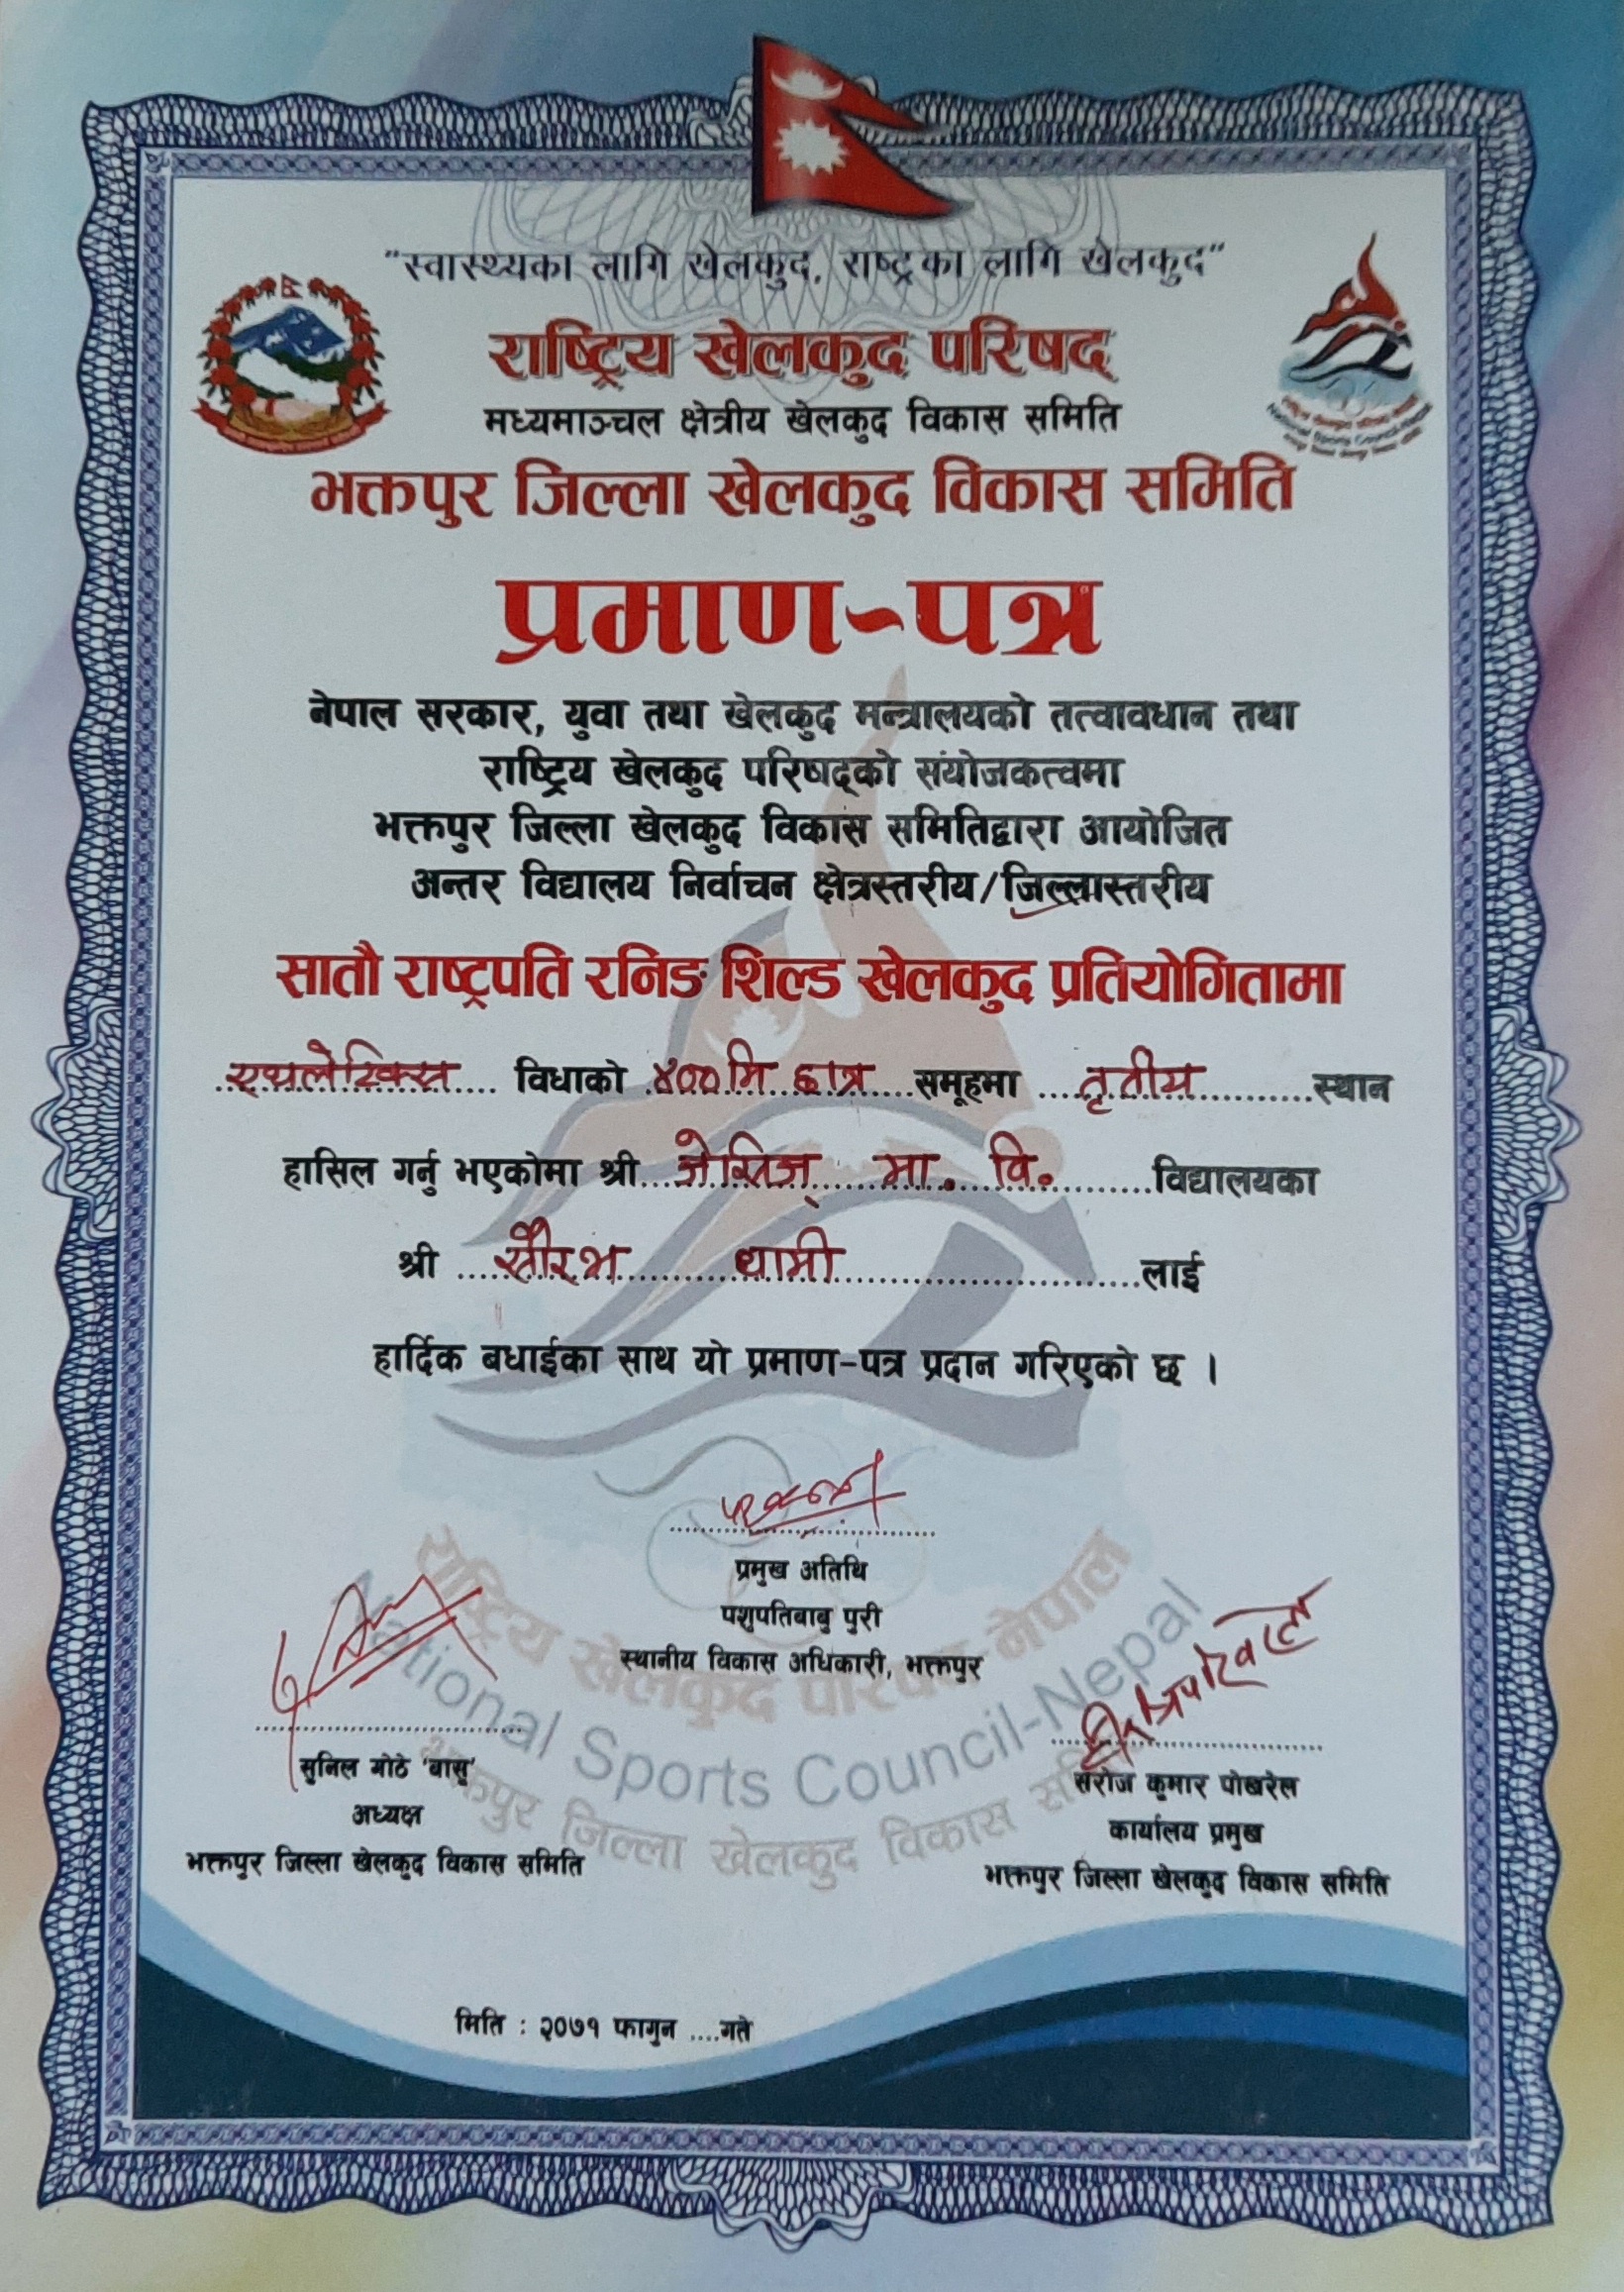 "स्वास्थ्यका लागि खेलकुद, राष्ट्रका लागि खेलकुद"
राष्ट्रिय खेलकुद परिषद्
मध्यमाञ्चल क्षेत्रीय खेलकुद विकास समिति
भक्तपुर जिल्ला खेलकुद विकास समिति
प्रमाण-पत्र
नेपाल सरकार, युवा तथा खेलकुद मन्त्रालयको तत्वावधान तथा
राष्ट्रिय खेलकुद परिषद्को संयोजकत्वमा
भक्तपुर जिल्ला खेलकुद विकास समितिद्वारा आयोजित
अन्तर विद्यालय निर्वाचन क्षेत्रस्तरीय/जिल्लास्तरीय
सातौ राष्ट्रपति रनिङ शिल्ड खेलकुद प्रतियोगितामा
एथलेटिक्स विधाको ४०० मि छात्र समूहमा तृतीय स्थान
हासिल गर्नु भएकोमा श्री जेसिज् मा. वि. विद्यालयका
श्री सौरभ धामी लाई
हार्दिक बधाईका साथ यो प्रमाण-पत्र प्रदान गरिएको छ ।
प्रमुख अतिथि
पशुपतिबाबु पुरी
स्थानीय विकास अधिकारी, भक्तपुर
सुनिल गोठे 'बासु'
अध्यक्ष
भक्तपुर जिल्ला खेलकुद विकास समिति
सरोज कुमार पोखरेल
कार्यालय प्रमुख
भक्तपुर जिल्ला खेलकुद विकास समिति
राष्ट्रिय खेलकुद परिषद नेपाल
National Sports Council-Nepal
भक्तपुर जिल्ला खेलकुद विकास समिति
मिति : २०७१ फागुन ....गते